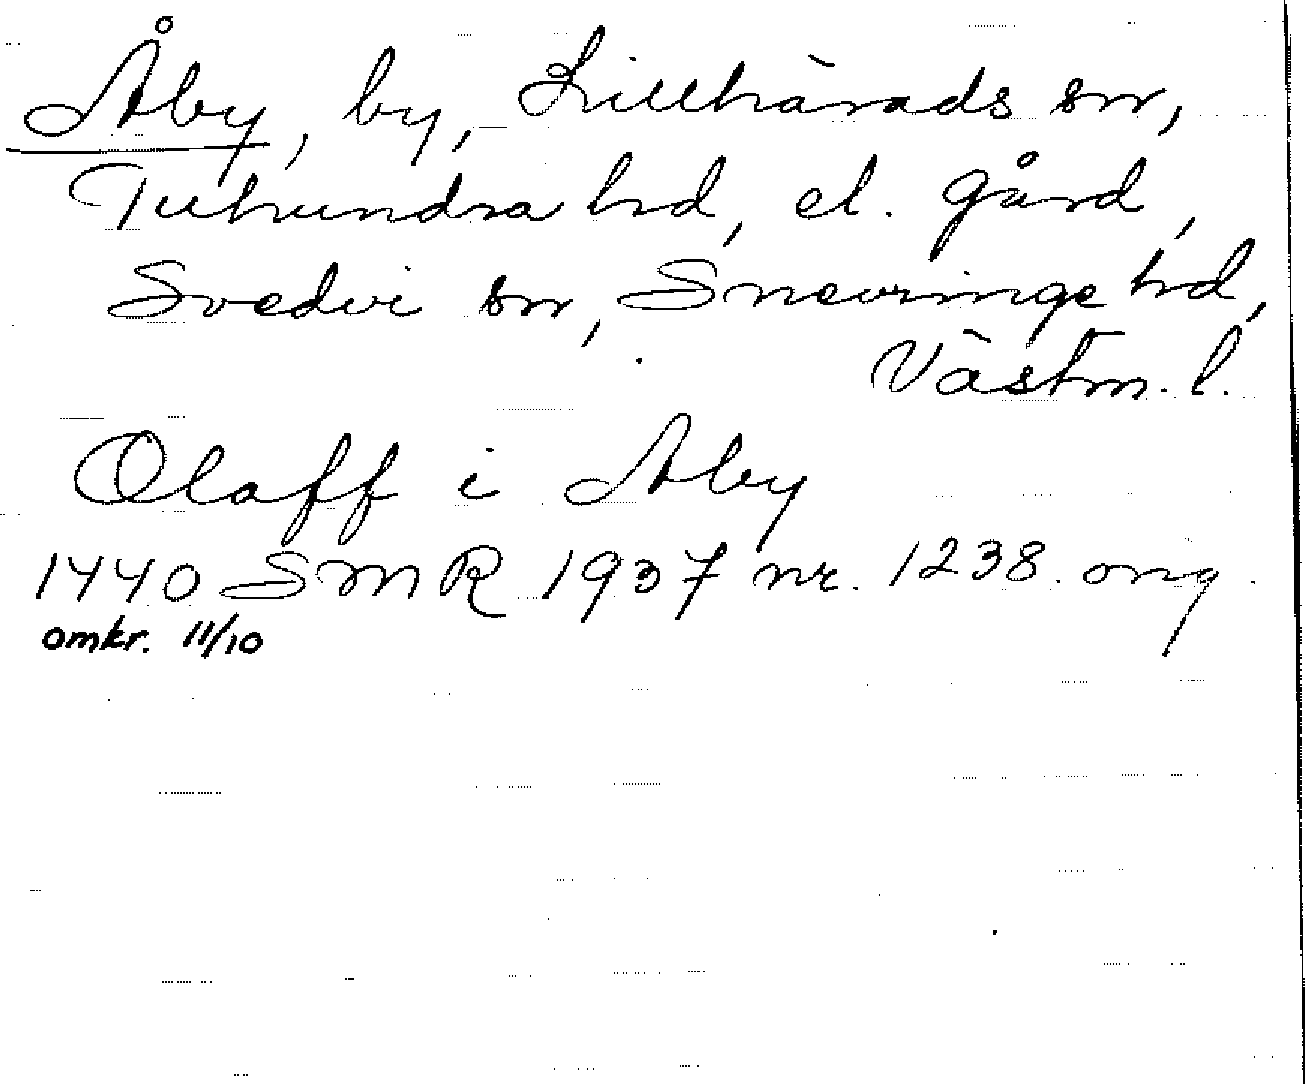 Åby, by, Lillhärads sn,
Tuhundra hd, el. gård,
Svedvi sn, Snevringe hd,
Västm. l.
Olaff i Aby
1440 SMR 1937 nr. 1238. orig.
omkr. 11/10